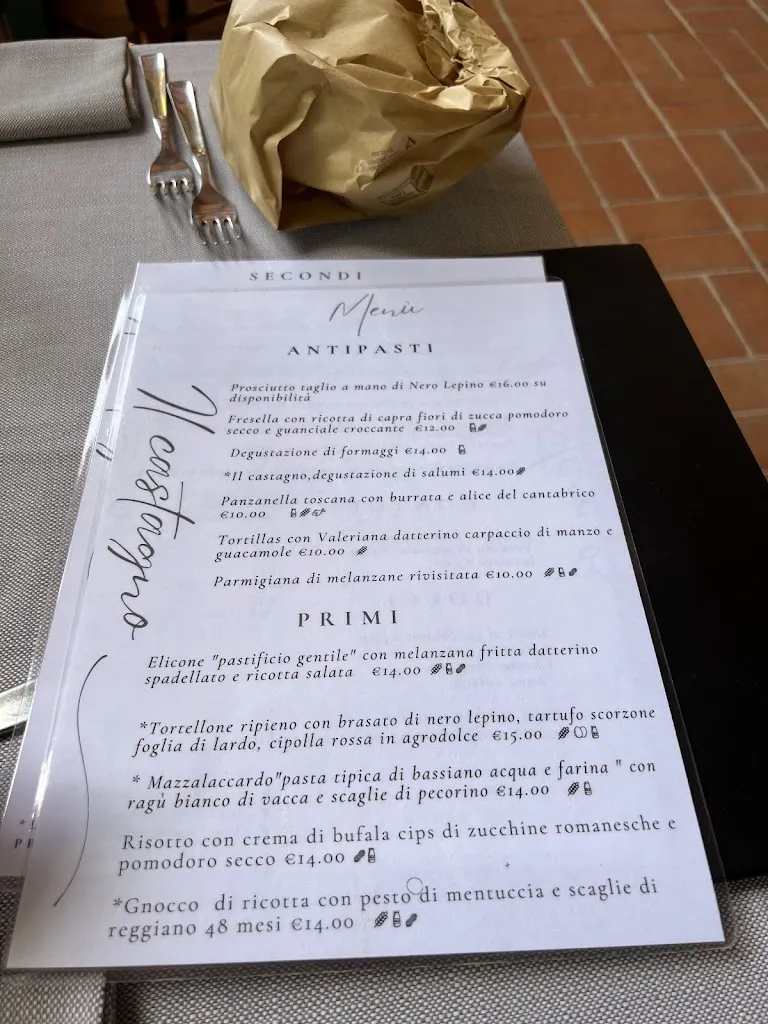 SECONDI
Menù
ANTIPASTI
Il castagno
Prosciutto taglio a mano di Nero Lepino €16.00 su
disponibilità
Fresella con ricotta di capra fiori di zucca pomodoro
secco e guanciale croccante €12.00
Degustazione di formaggi €14.00
*Il castagno,degustazione di salumi €14.00
Panzanella toscana con burrata e alice del cantabrico
€10.00
Tortillas con Valeriana datterino carpaccio di manzo e
guacamole €10.00
Parmigiana di melanzane rivisitata €10.00
PRIMI
Elicone "pastificio gentile" con melanzana fritta datterino
spadellato e ricotta salata €14.00
*Tortellone ripieno con brasato di nero lepino, tartufo scorzone
foglia di lardo, cipolla rossa in agrodolce €15.00
* Mazzalaccardo"pasta tipica di bassiano acqua e farina " con
ragù bianco di vacca e scaglie di pecorino €14.00
Risotto con crema di bufala cips di zucchine romanesche e
pomodoro secco €14.00
*Gnocco di ricotta con pesto di mentuccia e scaglie di
reggiano 48 mesi €14.00